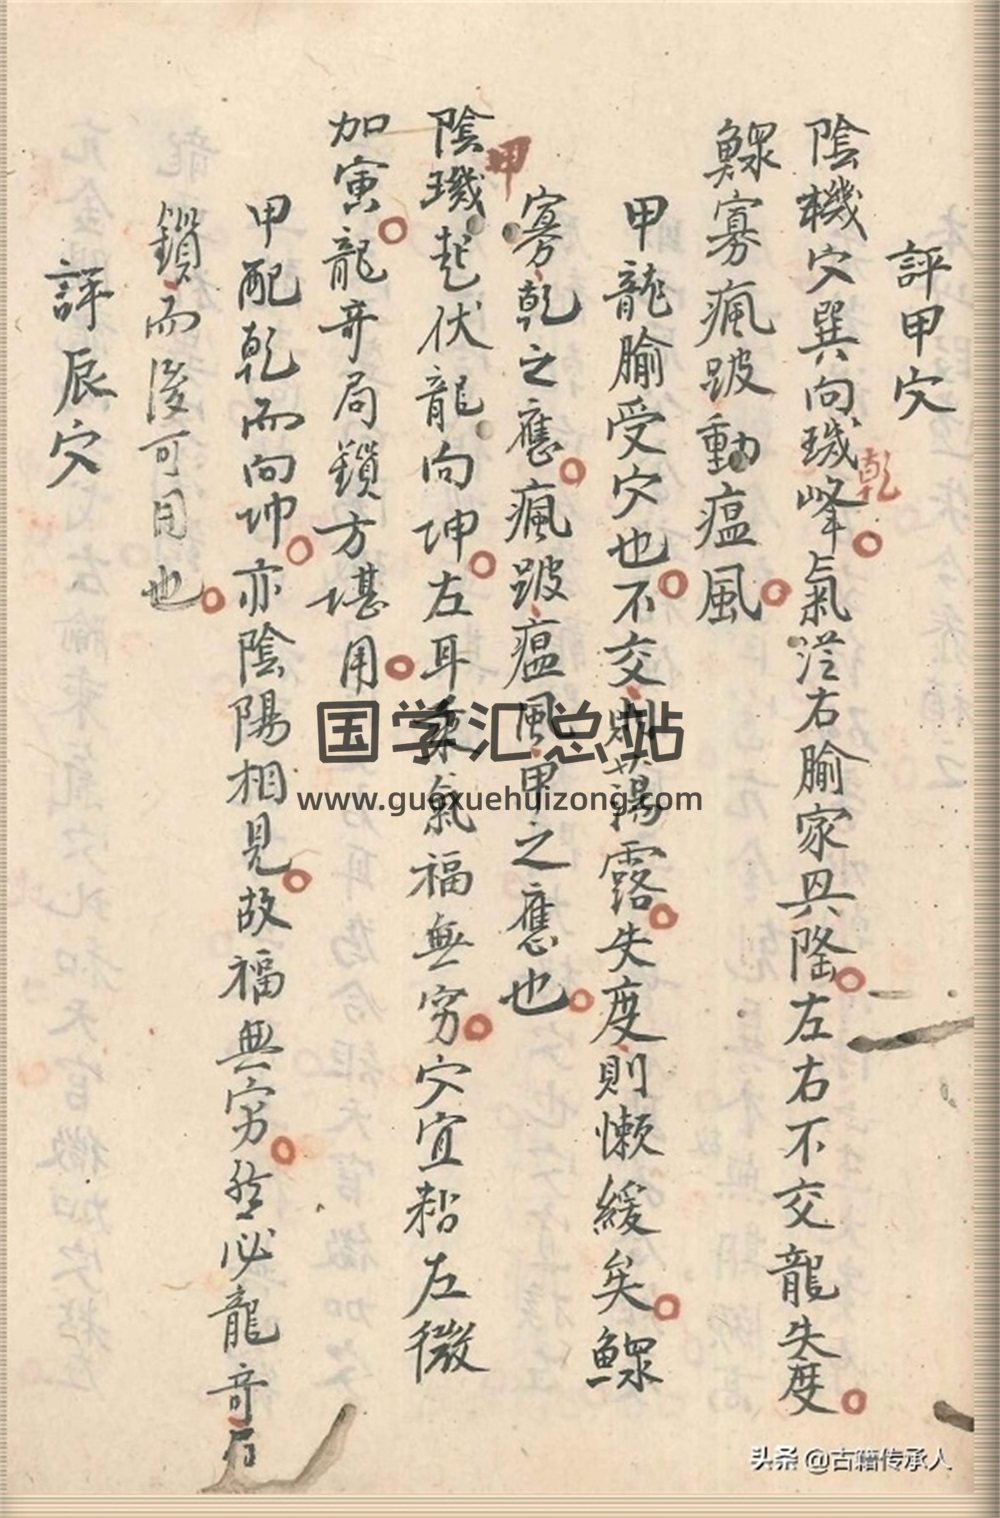 評甲穴
陰機穴巽向璣峰氣從右腧家興隆左右不交龍失度
乾
鰥寡瘋跛動瘟風
甲龍腧受穴也不交則蕩露失度則懶緩矣鰥
寡乾之應瘋跛瘟風甲之應也
甲
陰璣起伏龍向坤左耳乘氣福無窮穴宜粘左微
加寅龍奇局鎖方堪用
甲配乾而向坤亦陰陽相見故福無窮然必龍奇局
鎖而後可用也
評辰穴
国学汇总站
www.guoxuehuizong.com
头条 @古籍传承人